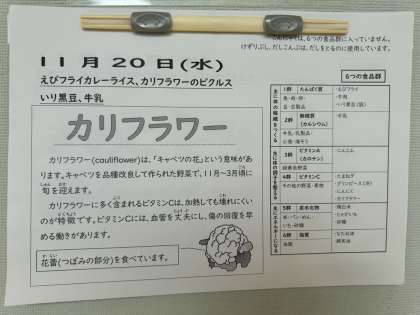 は、6つの食品群に入っていません。
けずりぶし、だしこんぶは、だしをとるのに使用しています。
11月20日(水)
えびフライカレーライス、カリフラワーのピクルス
いり黒豆、牛乳
カリフラワー
カリフラワー(cauliflower)は、「キャベツの花」という意味があり
ます。キャベツを品種改良して作られた野菜で、11月～3月頃に
旬を迎えます。
カリフラワーに多く含まれるビタミンCは、加熱しても壊れにくい
のが特徴です。ビタミンCには、血管を丈夫にし、傷の回復を早
める働きがあります。
花蕾(つぼみの部分)を食べています。
6つの食品群
主に体の組織をつくる
1群 たんぱく質
魚・肉・卵・
豆・豆製品
・えびフライ
・牛肉
・いり黒豆(豆)
2群 無機質
(カルシウム)
牛乳・乳製品・
小魚・海そう
・牛乳
主に体の調子を整える
3群 ビタミンA
(カロテン)
緑黄色野菜
・にんじん
4群 ビタミンC
その他の野菜・果物
・たまねぎ
・グリンピース(冷)
・にんにく
・カリフラワー
主にエネルギーになる
5群 炭水化物
米・パン・めん・
いも・砂糖
・精白米
・じゃがいも
・砂糖
6群 脂質
油脂
・なたね油
・綿実油